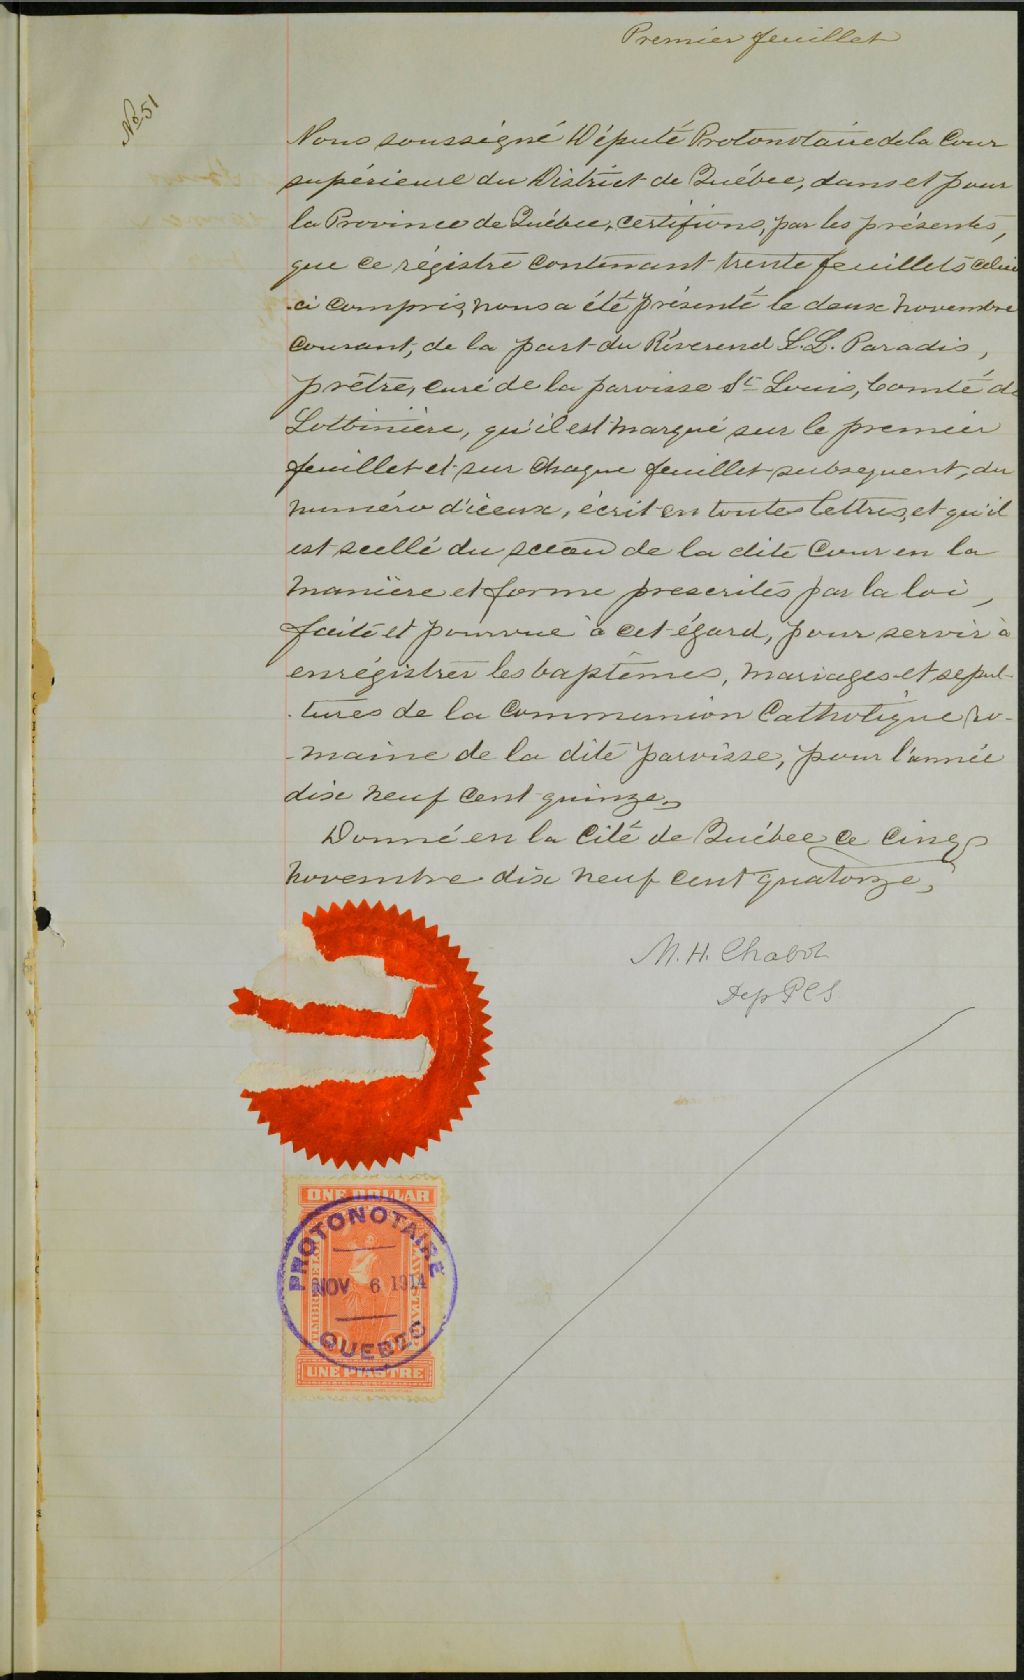 Premier feuillet
No 51
Nous soussigné Député Protonotaire de la Cour
supérieure du District de Québec, dans et pour
la Province de Québec, certifions, par les présentes,
que ce régistre contenant trente feuillets celui
-ci compris, nous a été présenté le deux novembre
courant, de la part du Révérend L. L. Paradis,
prêtre, curé de la paroisse St Louis, Comté de
Lotbinière, qu'il est marqué sur le premier
feuillet et sur chaque feuillet subsequent, du
numéro d'iceux, écrit en toutes lettres, et qu'il
est scellé du sceau de la dite Cour en la
manière et forme prescrites par la loi,
faite et pourvue à cet égard, pour servir à
enrégistrer les baptêmes, mariages et sepul-
-tures de la Communion Catholique ro-
-maine de la dite paroisse, pour l'année
dix neuf cent quinze,
Donné en la Cité de Québec ce cinq
novembre dix neuf cent quatorze,
M. H. Chabot
Dep PCS
ONE DOLLAR
PROTONOTAIRE
NOV 6 1914
QUEBEC
UNE PIASTRE